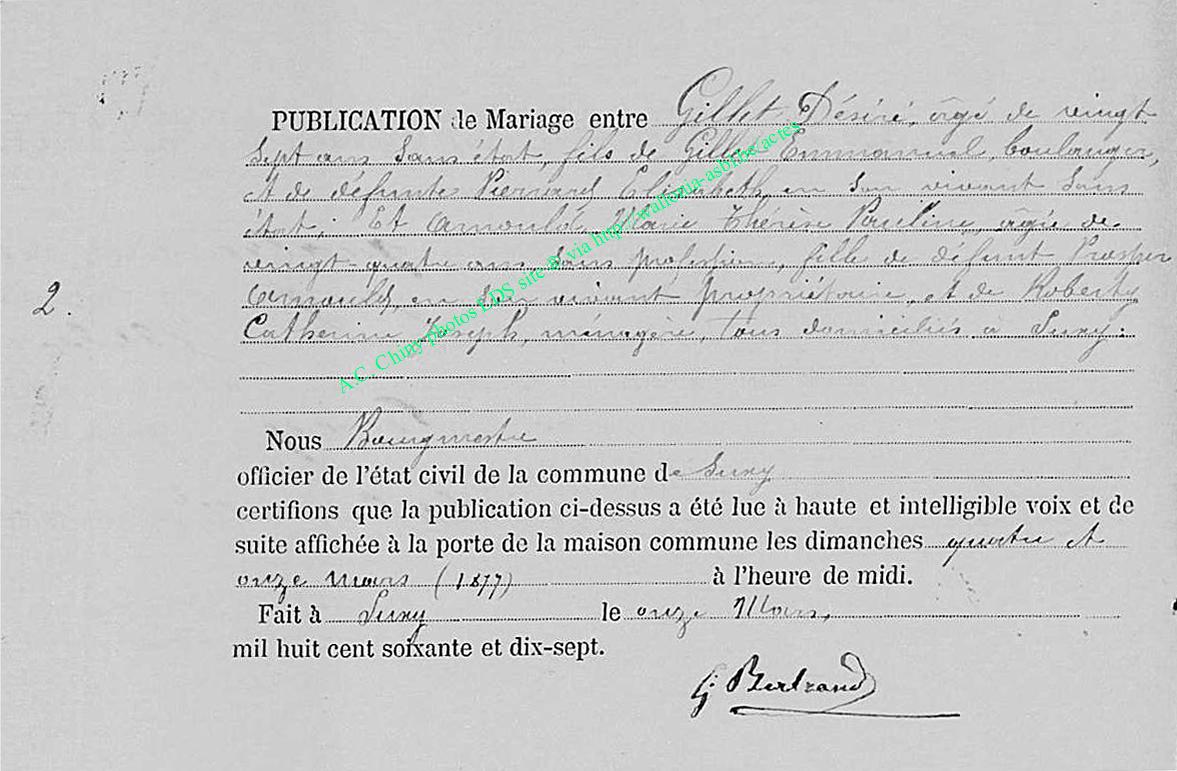 PUBLICATION de Mariage entre Gillet Désiré, âgé de vingt
sept ans sans état, fils de Gillet Emmanuel, boulanger
et de défunte Pierrard Elisabeth en son vivant sans
état. Et Arnould, Marie Thérèse Pauline, âgée de
vingt quatre ans sans profession, fille de défunt Prosper
Arnould, en son vivant propriétaire, et de Roberty
2.
Catherine Joseph, ménagère, tous domiciliés à Suxy.
A.C. Chiny photos LDS site © via http://wallonia-asbl.be/actes
Nous Bourgmestre
officier de l'état civil de la commune de Suxy
certifions que la publication ci-dessus a été lue à haute et intelligible voix et de
suite affichée à la porte de la maison commune les dimanches quatre et
onze mars (1877) à l'heure de midi.
Fait à Suxy le onze Mars,
mil huit cent soixante et dix-sept.
G Bertrand